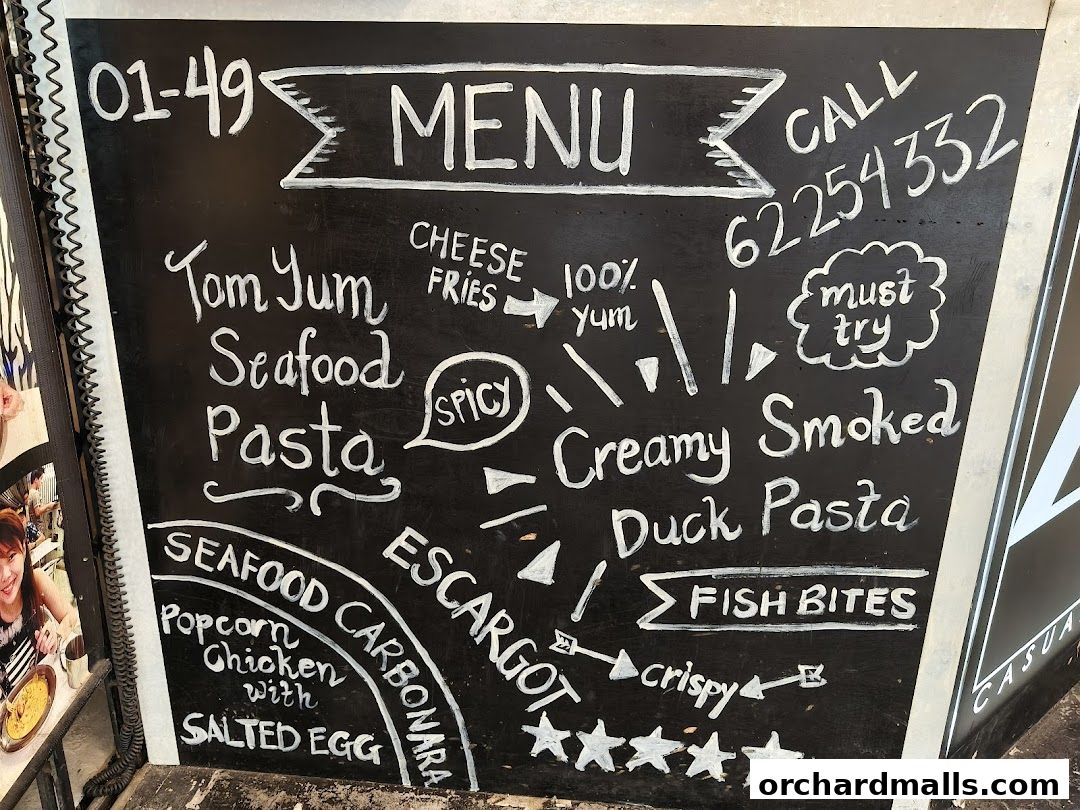 01-49
MENU
CALL
62254332
CHEESE
FRIES
100%
Yum
must
try
Tom Yum
Seafood
Pasta
SPICY
Creamy Smoked
Duck Pasta
SEAFOOD CARBONARA
ESCARGOT
FISH BITES
Popcorn
Chicken
with
SALTED EGG
crispy
CASUA
orchardmalls.com